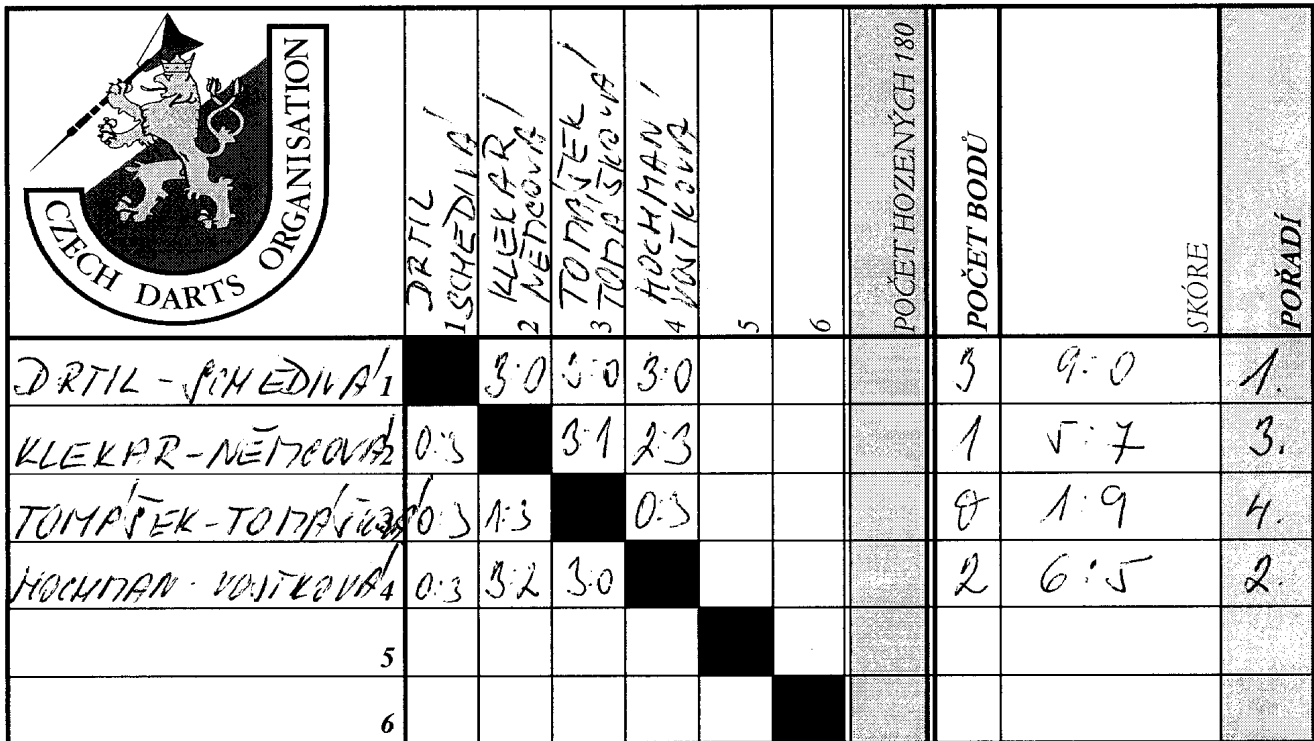 CZECH DARTS ORGANISATION
DRTIL SCHEDIVÁ 1
KLEKAR NĚMCOVÁ 2
TOMÁŠEK TOMÁŠKOVÁ 3
HOCHMAN VOSTKOVÁ 4
5
6
POČET HOZENÝCH 180
POČET BODŮ
SKÓRE
POŘADÍ
DRTIL - SCHEDIVÁ 1 3:0 3:0 3:0 3 9:0 1.
KLEKAR - NĚMCOVÁ 2 0:3 3:1 2:3 1 5:7 3.
TOMÁŠEK - TOMÁŠKOVÁ 3 0:3 1:3 0:3 0 1:9 4.
HOCHMAN - VOSTKOVÁ 4 0:3 3:2 3:0 2 6:5 2.
5
6